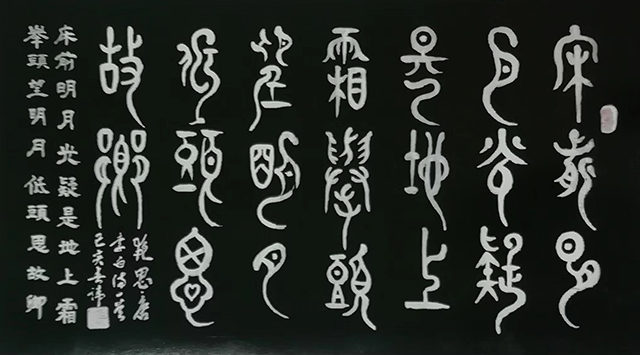 床前明
月光疑
是地上
霜舉頭
望明月
低頭思
故鄉
李白詩
己亥春
床前明月光疑是地上霜
舉頭望明月低頭思故鄉